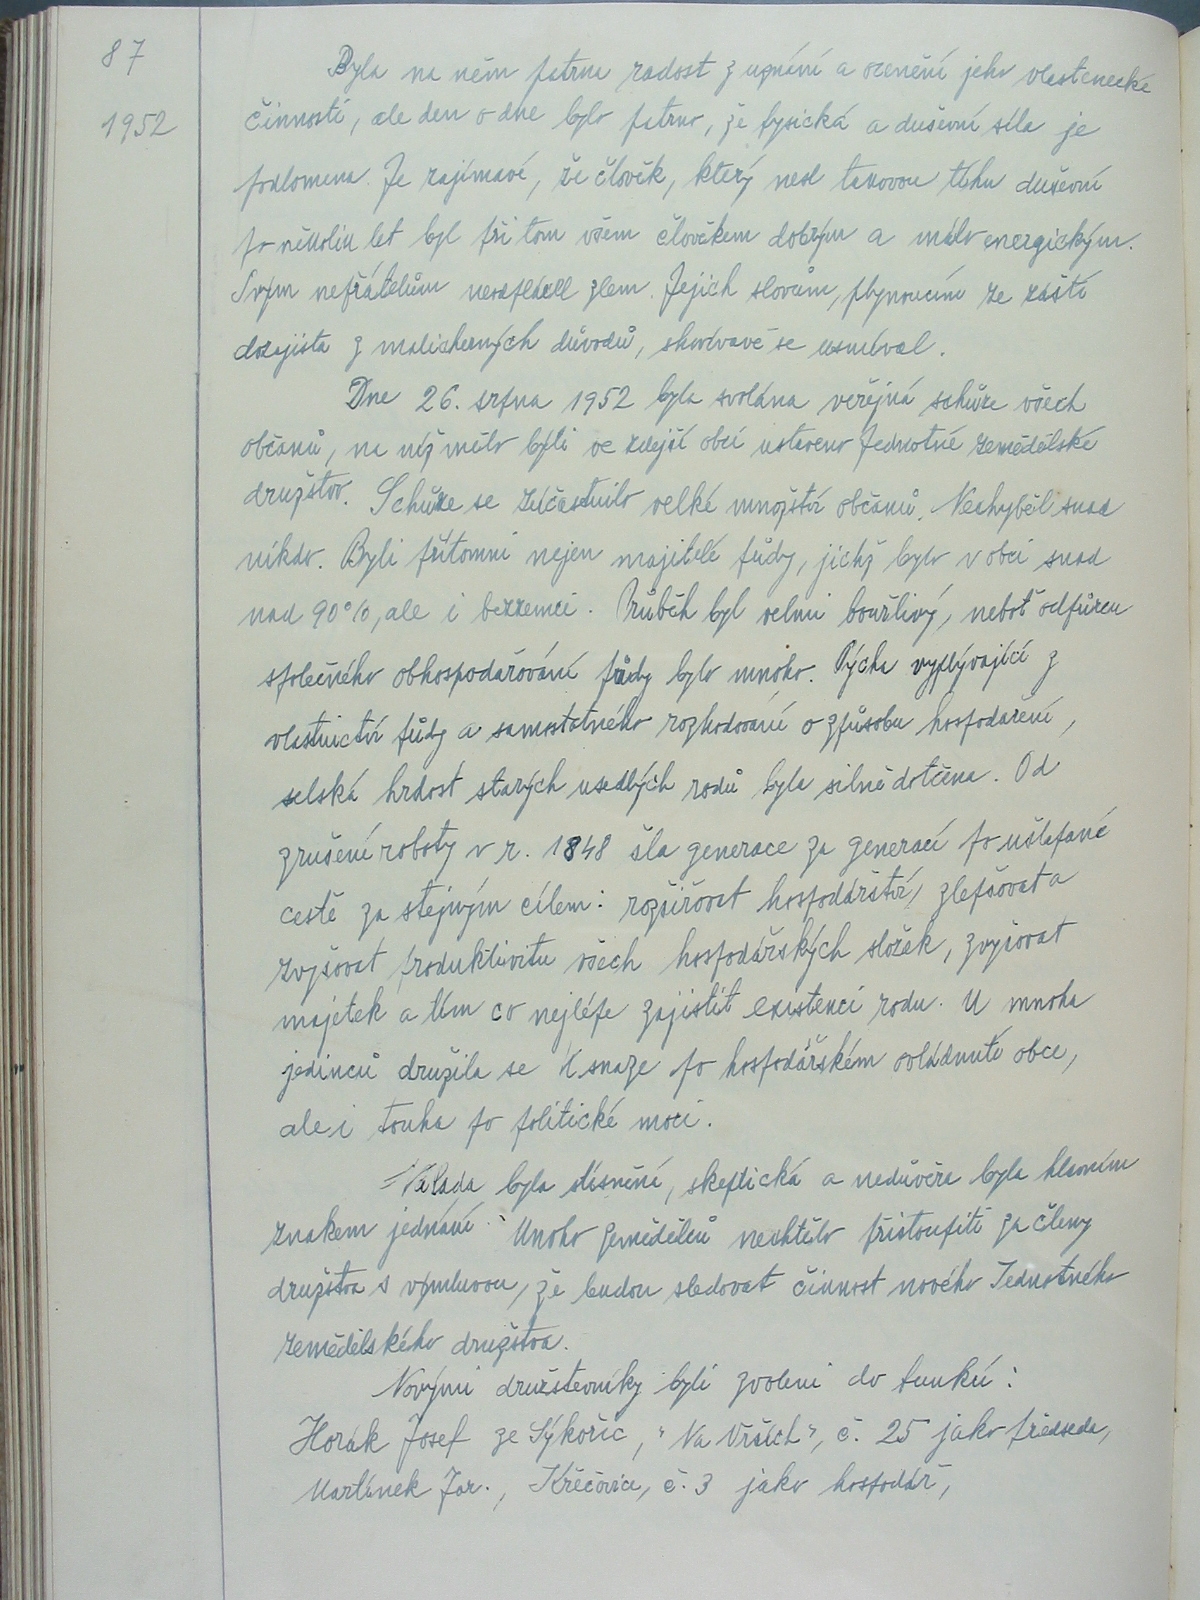 87
1952
Byla na něm patrna radost z uznání a ocenění jeho vlastenecké
činnosti, ale den o dne bylo patrno, že fysická a duševní síla je
podlomena. Je zajímavé, že člověk, který nesl takovou tíhu duševní
po několik let byl při tom všem člověkem dobrým a málo energickým.
Svým nepřátelům neoplácel zlem. Jejich slovům, plynoucím ze zášti
dozajista z malicherných důvodů, shovívavě se usmíval.
Dne 26. srpna 1952 byla svolána veřejná schůze všech
občanů, na níž mělo býti ve zdejší obci ustaveno Jednotné zemědělské
družstvo. Schůze se zúčastnilo velké množství občanů. Nechyběl snad
nikdo. Byli přítomni nejen majitelé půdy, jichž bylo v obci snad
nad 90%, ale i bezzemci. Průběh byl velmi bouřlivý, neboť odpůrců
společného obhospodařování půdy bylo mnoho. Pýcha vyplývající z
vlastnictví půdy a samostatného rozhodování o způsobu hospodaření,
selská hrdost starých usedlých rodů byla silně dotčena. Od
zrušení roboty v r. 1848 šla generace za generací po ušlapané
cestě za stejným cílem: rozšiřovat hospodářství, zlepšovat a
zvyšovat produktivitu všech hospodářských složek, zvyšovat
majetek a tím co nejlépe zajistit existenci rodu. U mnoha
jedinců družila se k snaze po hospodářském ovládnutí obce,
ale i touha po politické moci.
Nálada byla stísněná, skeptická a nedůvěra byla hlavním
znakem jednání. Mnoho zemědělců nechtělo přistoupiti za členy
družstva s výmluvou, že budou sledovat činnost nového Jednotného
zemědělského družstva.
Novými družstevníky byli zvoleni do funkcí:
Horák Josef ze Sýkořic, "Na Vrších", č. 25 jako předseda,
Martínek Jar., Křečovice, č. 3 jako hospodář,